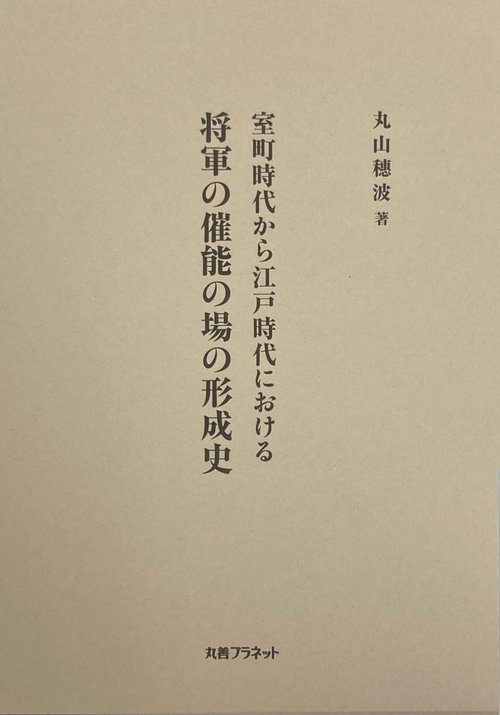 丸山穗波 著
室町時代から江戸時代における
将軍の催能の場の形成史
丸善プラネット